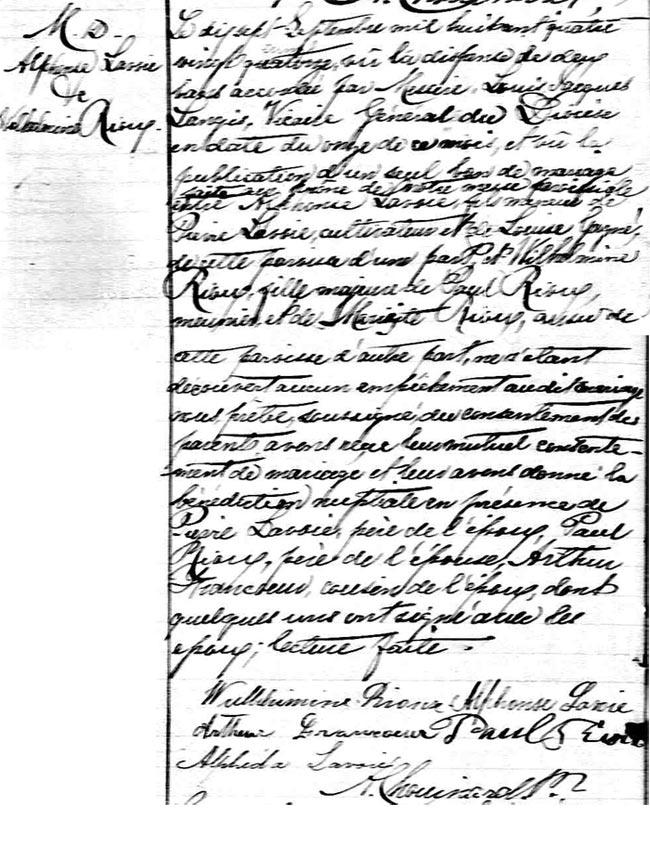 M. D.
Alphonse Lavoie
&
Wilhelmine Rioux.
Le dix sept Septembre mil huit cent quatre
vingt quatorze, vû la dispense de deux
bans accordée par Messire Louis Jacques
Langis, Vicaire Général du Diocèse
en date du onze de ce mois, et vû la
publication d'un seul ban de mariage
faite au prône de notre messe paroissiale
entre Alphonse Lavoie, fils majeur de
Pierre Lavoie, cultivateur et de Louise Gagné,
de cette paroisse d'une part, et Wilhelmine
Rioux, fille majeure de Paul Rioux,
meunier, et de Rioux, aussi de
cette paroisse d'autre part, ne s'étant
découvert aucun empêchement au dit mariage
nous prêtre, soussigné, du consentement des
parents avons reçu leur mutuel consente-
ment de mariage et leur avons donné la
bénédiction nuptiale en présence de
Pierre Lavoie, père de l'époux, Paul
Rioux, père de l'épouse, Arthur
Francoeur, cousin de l'époux, dont
quelques uns ont signé avec les
époux; lecture faite.
Alphonse Lavoie
Arthur Francoeur Paul Rioux
Alphéda Lavoie
A. Chouinard Ptre